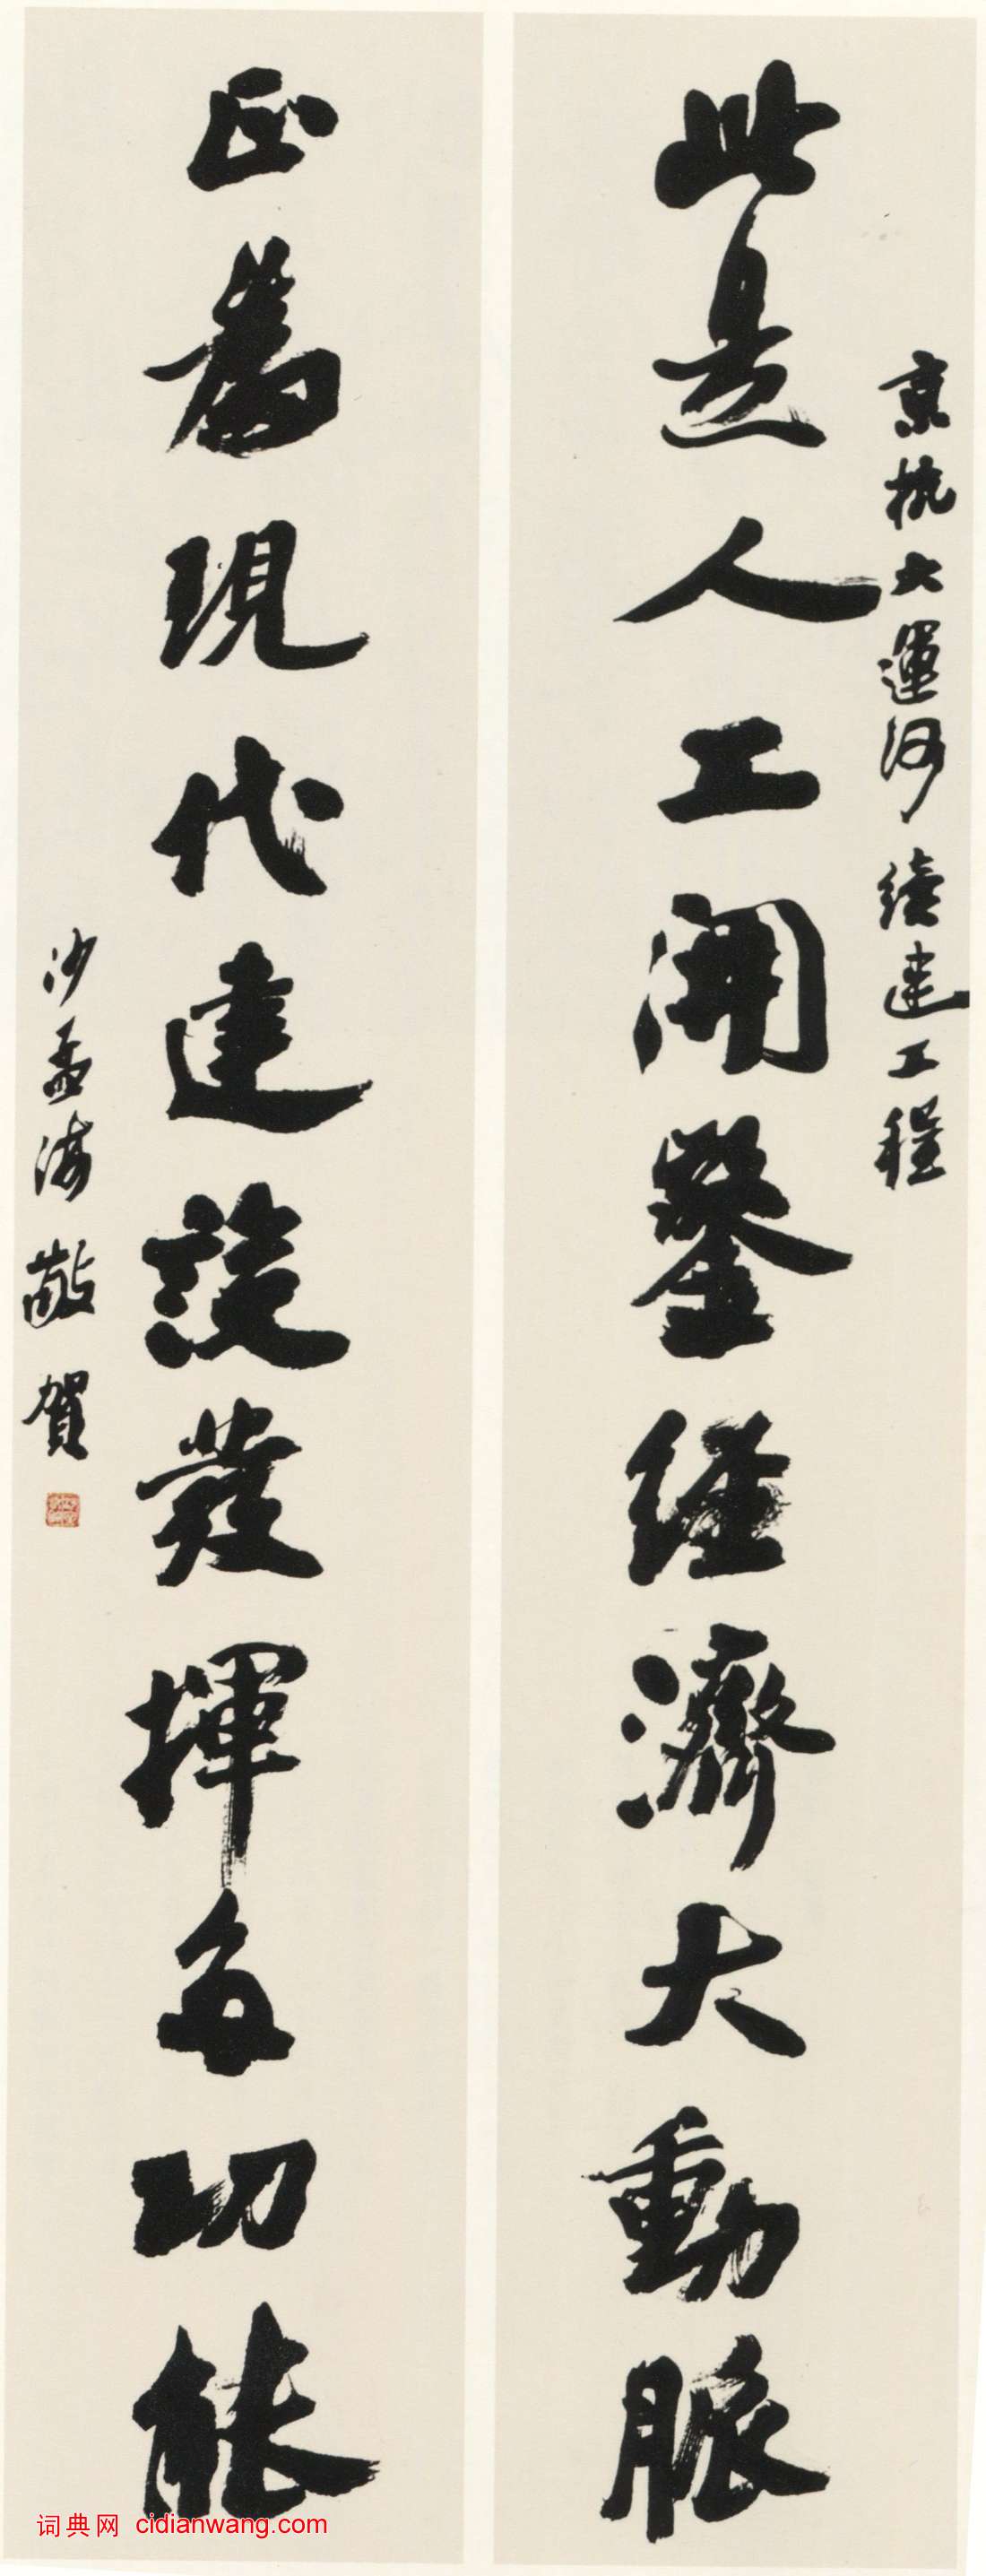 京杭大運河續建工程
此是人工開鑿經濟大動脈
正為現代建設發揮多功能
沙孟海敬賀
词典网 cidianwang.com